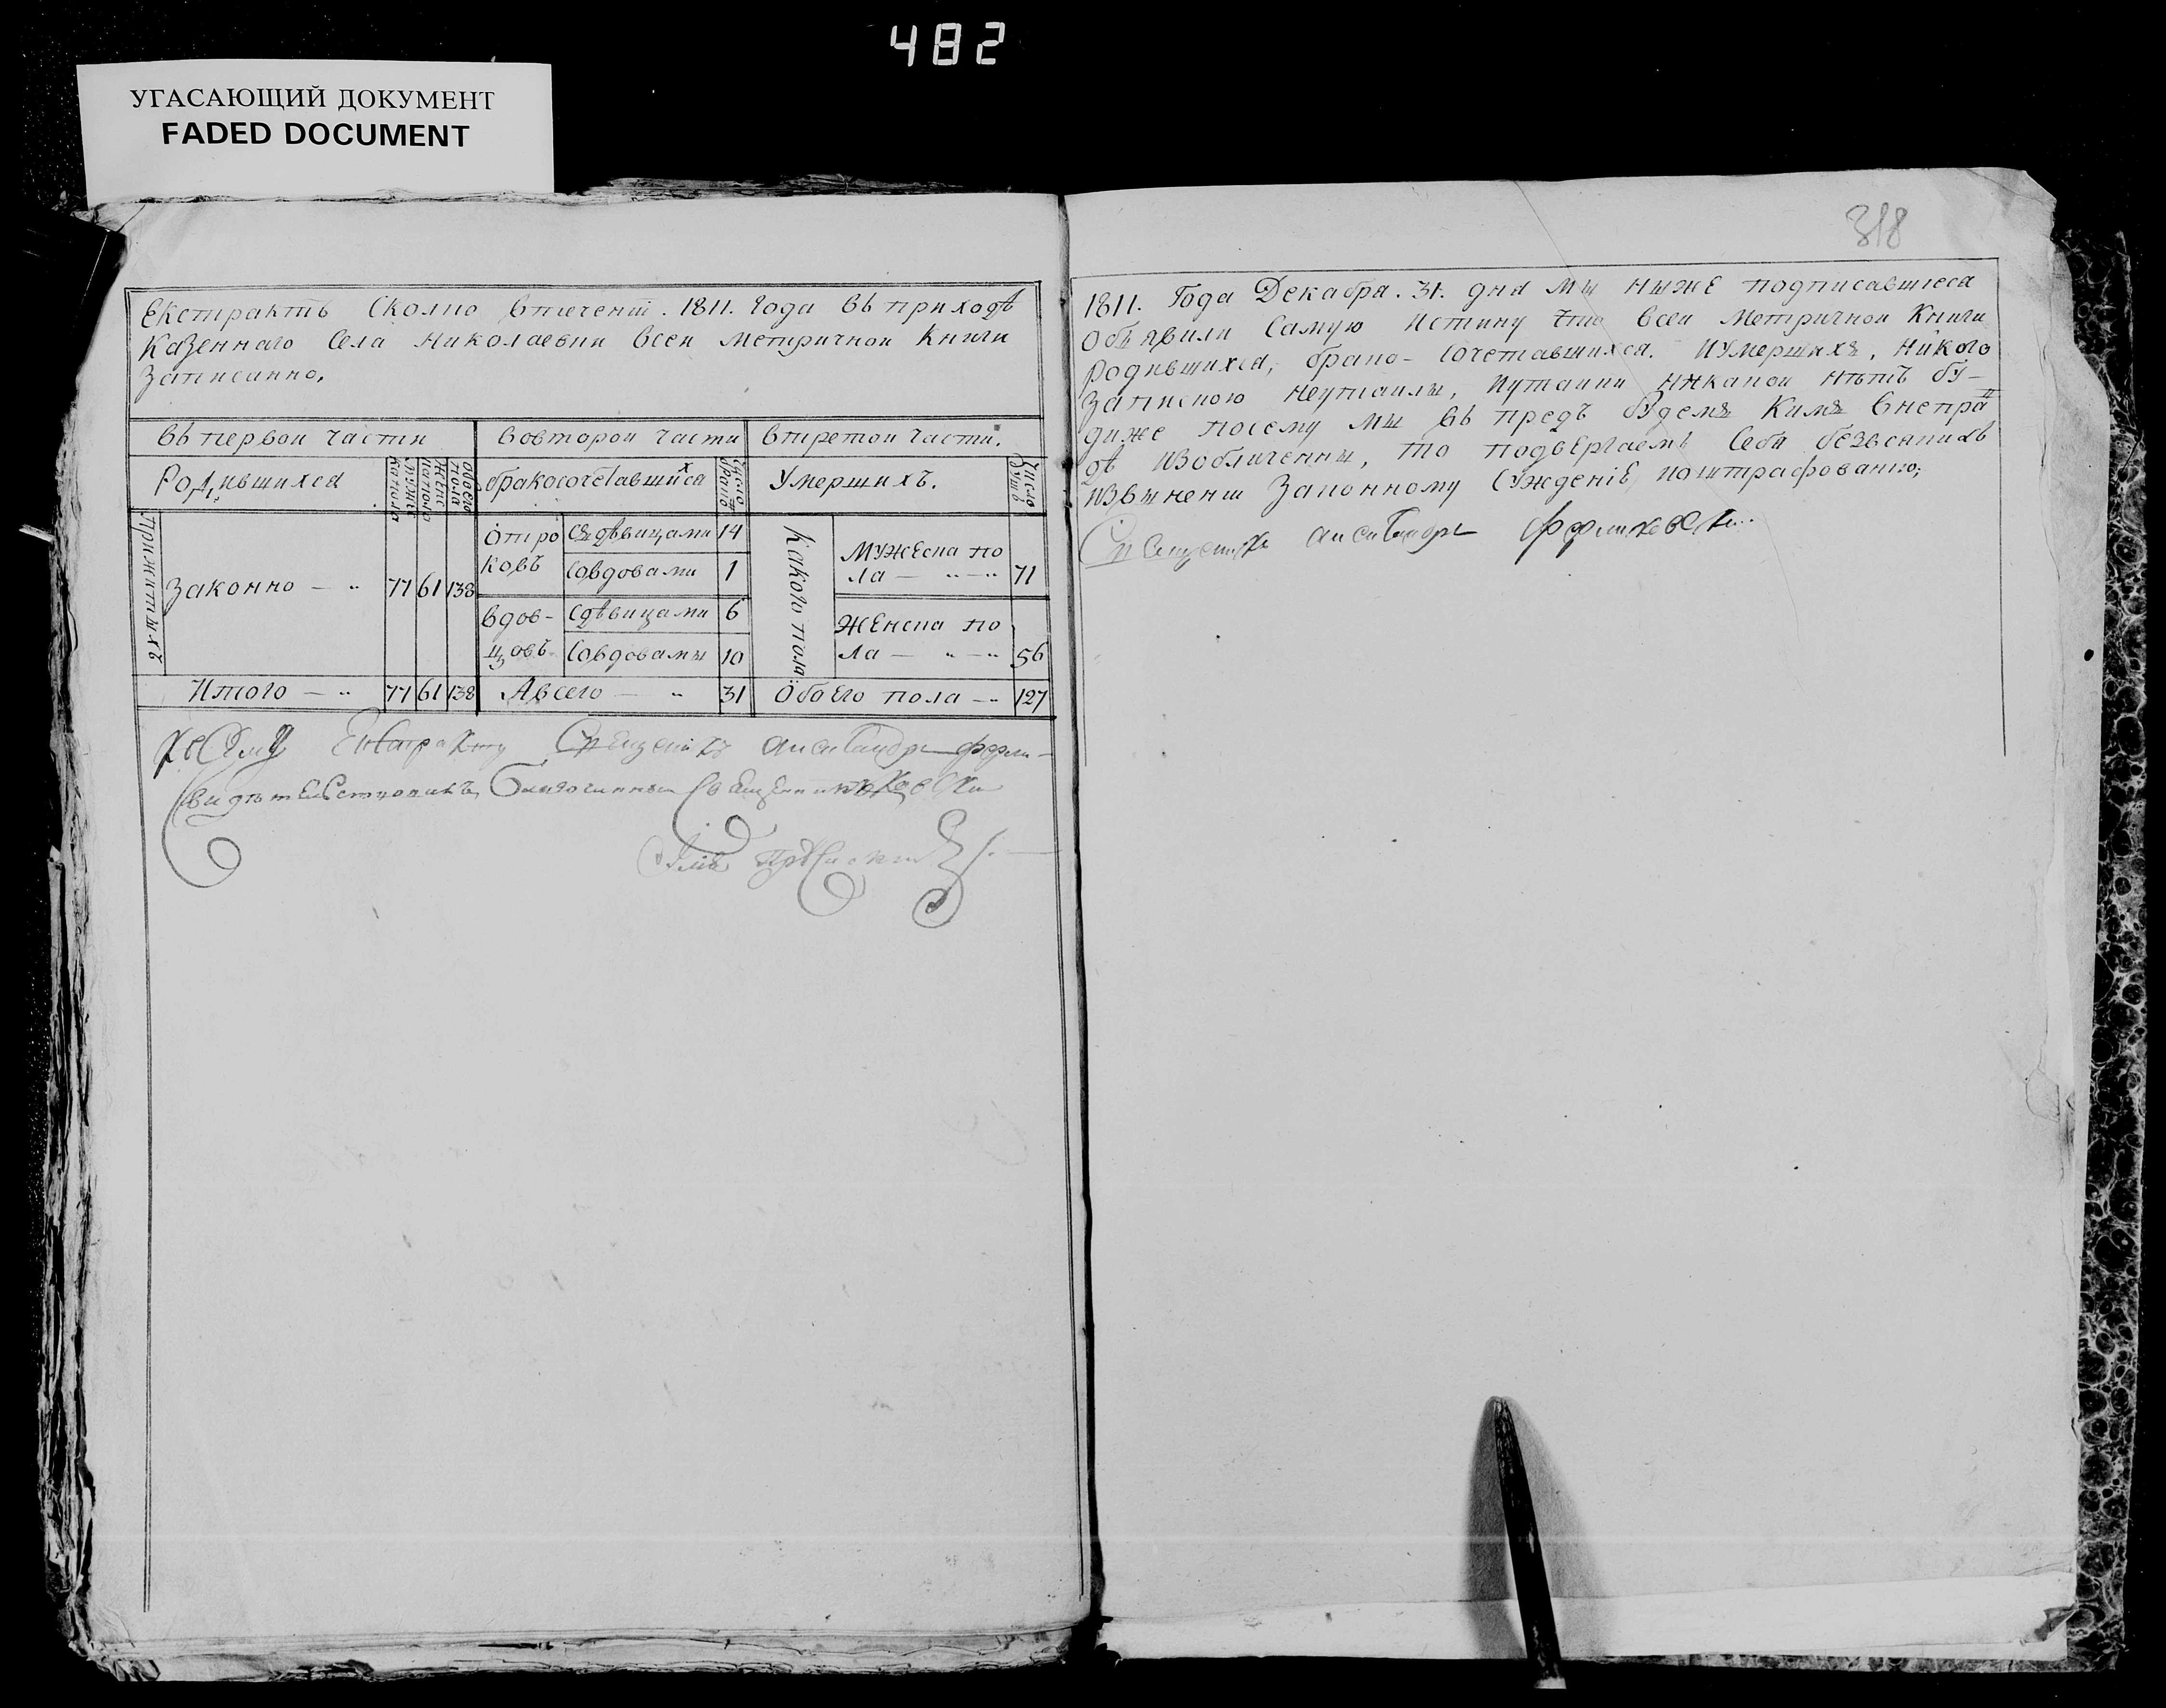 482
УГАСАЮЩИЙ ДОКУМЕНТ
FADED DOCUMENT
Екстрактъ Сколко втечении . 1811. Года въ приходѣ
Казеннаго Села Николаевки всей Метричной Книги
Записанно.
въ первои части
вовторои части
втретои части.
Родившихся
Мужеска пола
Женска пола
обоего пола
бракосочетавшихся
Число браковъ
Умершихъ.
Число душъ
Прижитыхъ
Законно — „
77 61 138
отроковъ
съ дѣвицами 14
совдовами 1
вдовцовъ
сдѣвицами 6
совдовами 10
Какого пола
Мужеска по
ла — „ — „ 71
Женска по
ла — „ — „ 56
Итого — „ 77 61 138
Авсего — „ 31
Обоего пола — „ 127
Ксему Екстракту Священикъ
Свидѣтелствовалъ Благочинный Священникъ
318
1811. Года Декабра . 31. дня Мы ниже подписавшиеся
объявили Самую Истину что всей Метричной Книги
родившихся, брако- Сочетавшихся. иУмершихъ, никого
Запискою неутаили, иутайки никакой нѣтъ бу-
диже посему мы въ предъ будемъ Кимъ Внепра
дѣ изобличенны, то подвергаемъ Себя безвсякихъ
извинении Законному Сужденіе, иоштрафованию;